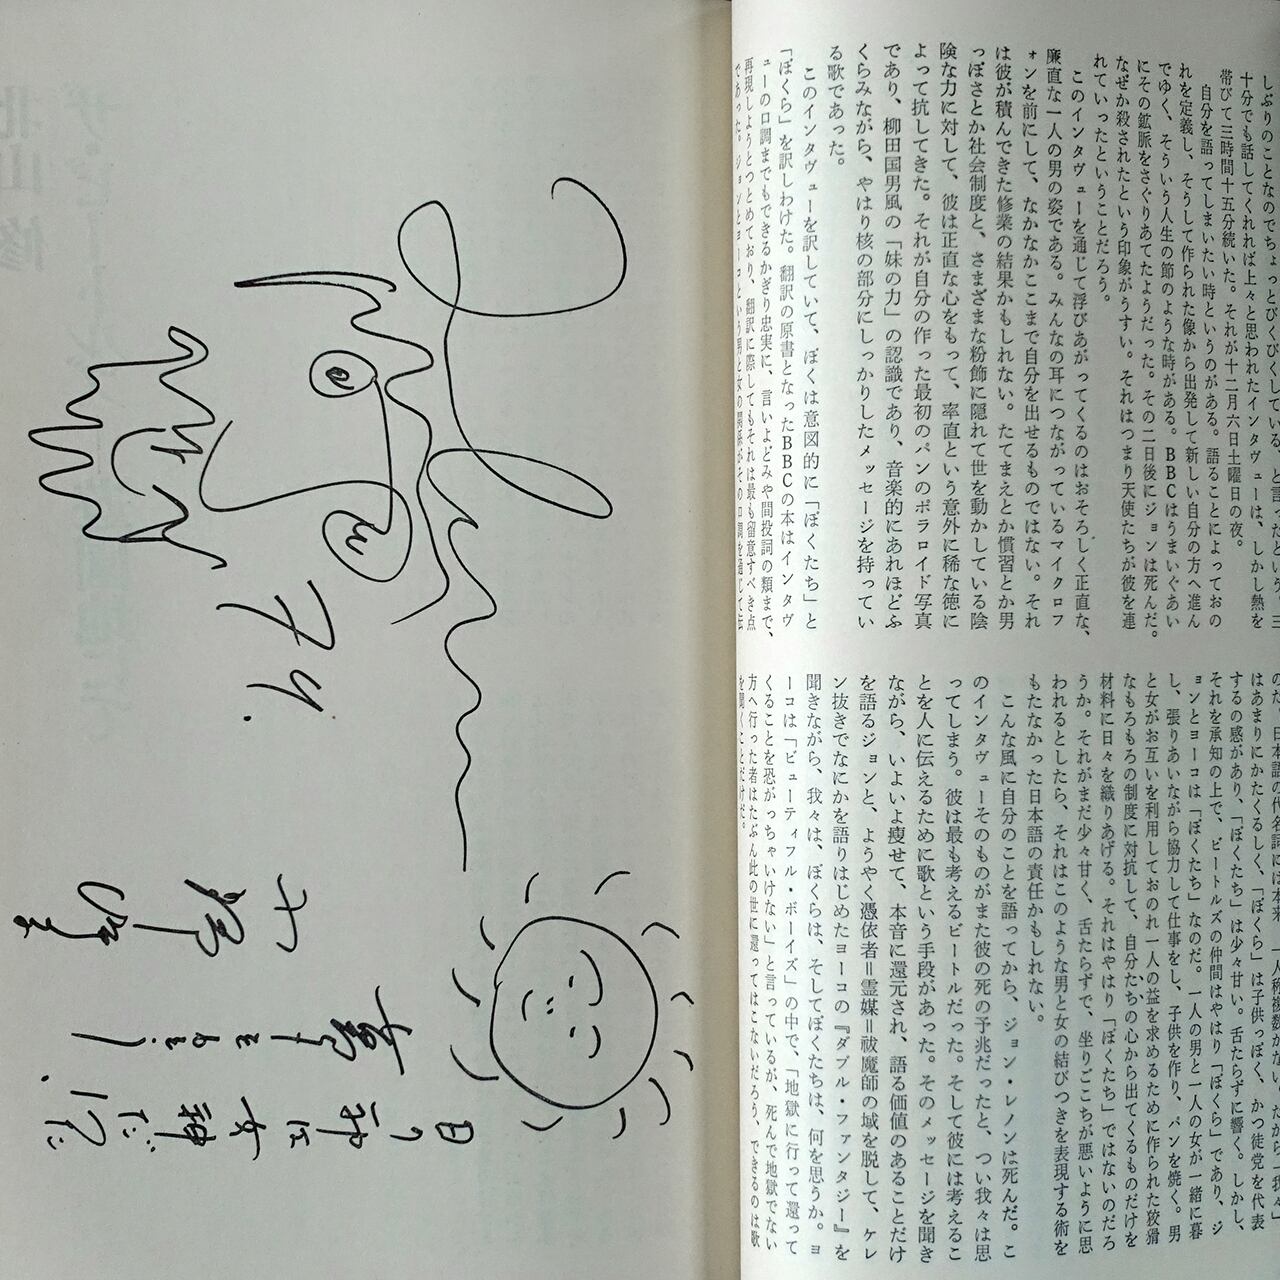 しぶりのことなのでちょっとびくびくしている、と言ったという。三
十分でも話してくれれば上々と思われたインタヴューは、しかし熱を
帯びて三時間十五分続いた。それが十二月六日土曜日の夜。
自分を語ってしまいたい時というのがある。語ることによっておの
れを定義し、そうして作られた像から出発して新しい自分の方へ進ん
でゆく、そういう人生の節のような時がある。BBCはうまいぐあい
にその鉱脈をさぐりあてたようだった。その二日後にジョンは死んだ。
なぜか殺されたという印象がうすい。それはつまり天使たちが彼を連
れていったということだろう。
このインタヴューを通じて浮びあがってくるのはおそろしく正直な、
廉直な一人の男の姿である。みんなの耳につながっているマイクロフ
ォンを前にして、なかなかここまで自分を出せるものではない。それ
は彼が積んできた修業の結果かもしれない。たてまえとか慣習とか男
っぽさとか社会制度と、さまざまな粉飾に隠れて世を動かしている陰
険な力に対して、彼は正直な心をもって、率直という意外に稀な徳に
よって抗してきた。それが自分の作った最初のパンのポラロイド写真
であり、柳田国男風の「妹の力」の認識であり、音楽的にあれほどふ
くらみながら、やはり核の部分にしっかりしたメッセージを持ってい
る歌であった。
このインタヴューを訳していて、ぼくは意図的に「ぼくたち」と
「ぼくら」を訳しわけた。翻訳の原書となったBBCの本はインタヴ
ューの口調までもできるかぎり忠実に、言いよどみや間投詞の類まで、
再現しようとつとめており、翻訳に際してもそれは最も留意すべき点
であった。ジョンとヨーコという男と女の関係がその口調を通じて伝
のだ。日本語の代名詞には本来、一人称複数がない。だから「我々」
はあまりにかたくるしく、「ぼくら」は子供っぽく、かつ徒党を代表
するの感があり、「ぼくたち」は少々甘い。舌たらずに響く。しかし、
それを承知の上で、ビートルズの仲間はやはり「ぼくら」であり、ジ
ョンとヨーコは「ぼくたち」なのだ。一人の男と一人の女が一緒に暮
し、張りあいながら協力して仕事をし、子供を作り、パンを焼く。男
と女がお互いを利用しておのれ一人の益を求めるために作られた狡猾
なもろもろの制度に対抗して、自分たちの心から出てくるものだけを
材料に日々を織りあげる。それはやはり「ぼくたち」ではないのだろ
うか。それがまだ少々甘く、舌たらずで、坐りごこちが悪いように思
われるとしたら、それはこのような男と女の結びつきを表現する術を
もたなかった日本語の責任かもしれない。
こんな風に自分のことを語ってから、ジョン・レノンは死んだ。こ
のインタヴューそのものがまた彼の死の予兆だったと、つい我々は思
ってしまう。彼は最も考えるビートルだった。そして彼には考えるこ
とを人に伝えるために歌という手段があった。そのメッセージを聞き
ながら、いよいよ痩せて、本音に還元され、語る価値のあることだけ
を語るジョンと、ようやく憑依者＝霊媒＝祓魔師の域を脱して、ケレ
ン抜きでなにかを語りはじめたヨーコの『ダブル・ファンタジー』を
聞きながら、我々は、ぼくらは、そしてぼくたちは、何を思うか。ヨ
ーコは「ビューティフル・ボーイズ」の中で、「地獄に行って還って
くることを恐がっちゃいけない」と言っているが、死んで地獄でない
方へ行った者はたぶん此の世に還ってはこないだろう、できるのは歌
を聞くことだけだ。
'74.
日の神は
女神だ